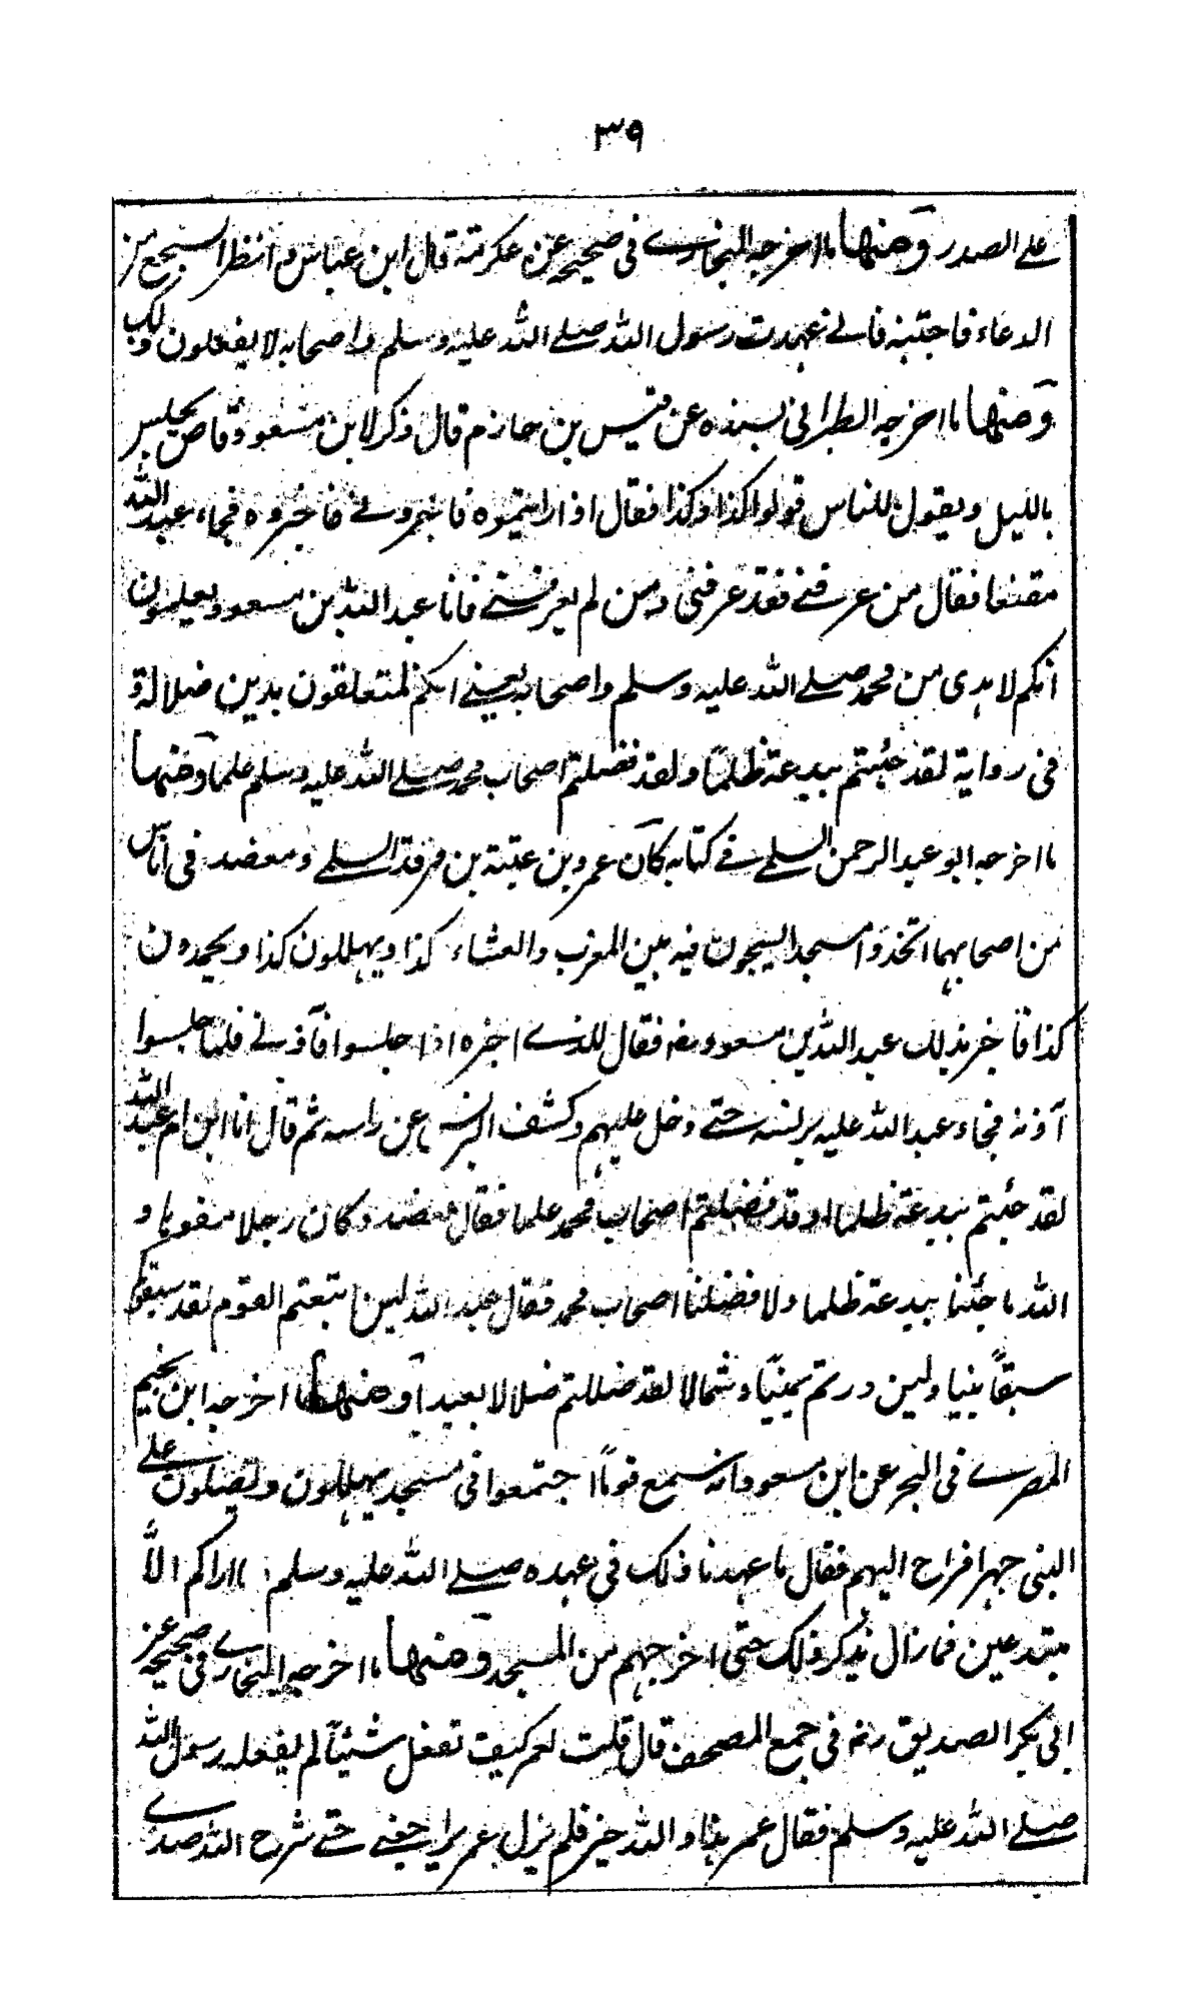 ٣٩
علے الصدر ومنها ما اخرجه البخارے فی صحیحه عن عکرمة قال ابن عباس وانظر السجع من
الدعاء فاجتنبه فانے عهدت رسول الله صلے الله علیه وسلم واصحابه لا یفعلون ذلک
ومنها ما اخرجه الطبرانی بسنده عن قیس بن حازم قال ذکر لابن مسعود قاص یجلس
باللیل ویقول للناس قولوا کذا وکذا فقال اذا رایتموه فاخبرونے فاخبروه فجاء عبد الله
مقنعا فقال من عرفنے فقد عرفنی ومن لم یعرفنے فانا عبد الله بن مسعود یعلمون
انکم لاهدی من محمد صلے الله علیه وسلم واصحابه یعنے انکم لمتعلقون بدین ضلالة و
فی روایة لقد جئتم ببدعة ظلماً ولقد فضلتم اصحاب محمد صلے الله علیه وسلم علما ومنها
ما اخرجه ابو عبد الرحمن السلمے فے کتابه کان عمرو بن عتبة بن فرقد السلمے ومعضد فی اناس
من اصحابهما اتخذوا مسجدا یسبحون فیه بین المغرب والعشاء کذا ویهللون کذا ویحمدون
کذا فاخبر بذلک عبد الله بن مسعود رضه فقال للذے اخبره اذا جلسوا فآذنے فلما جلسوا
آذنه فجاء عبد الله علیه برنسه حتے دخل علیهم وکشف البرنس عن راسه ثم قال انا ابن ام عبد الله
لقد جئتم ببدعة ظلما او قد فضلتم اصحاب محمد علما فقال معضد وکان رجلا مفوها و
الله ما جئنا ببدعة ظلما ولا فضلنا اصحاب محمد فقال عبد الله لین اتبعتم القوم لقد سبقوکم
سبقاً بینا ولین درتم یمیناً وشمالا لقد ضللتم ضلالا بعیدا ومنها ما اخرجه ابن نجیم
المصرے فی البحر عن ابن مسعود انه سمع قوماً اجتمعوا فی مسجد یهللون ویصلون علے
النبی جهرا فراح الیهم فقال ما عهدنا ذلک فی عهده صلے الله علیه وسلم ما اراکم الا
مبتدعین فما زال یذکر ذلک حتی اخرجهم من المسجد ومنها ما اخرجه البخارے فی صحیحه عن
ابی بکر الصدیق رضه فی جمع المصحف قال قلت لعمر کیف تفعل شیئاً لم یفعله رسول الله
صلے الله علیه وسلم فقال عمر هذا والله خیر فلم یزل عمر یراجعنے حتے شرح الله صدرے